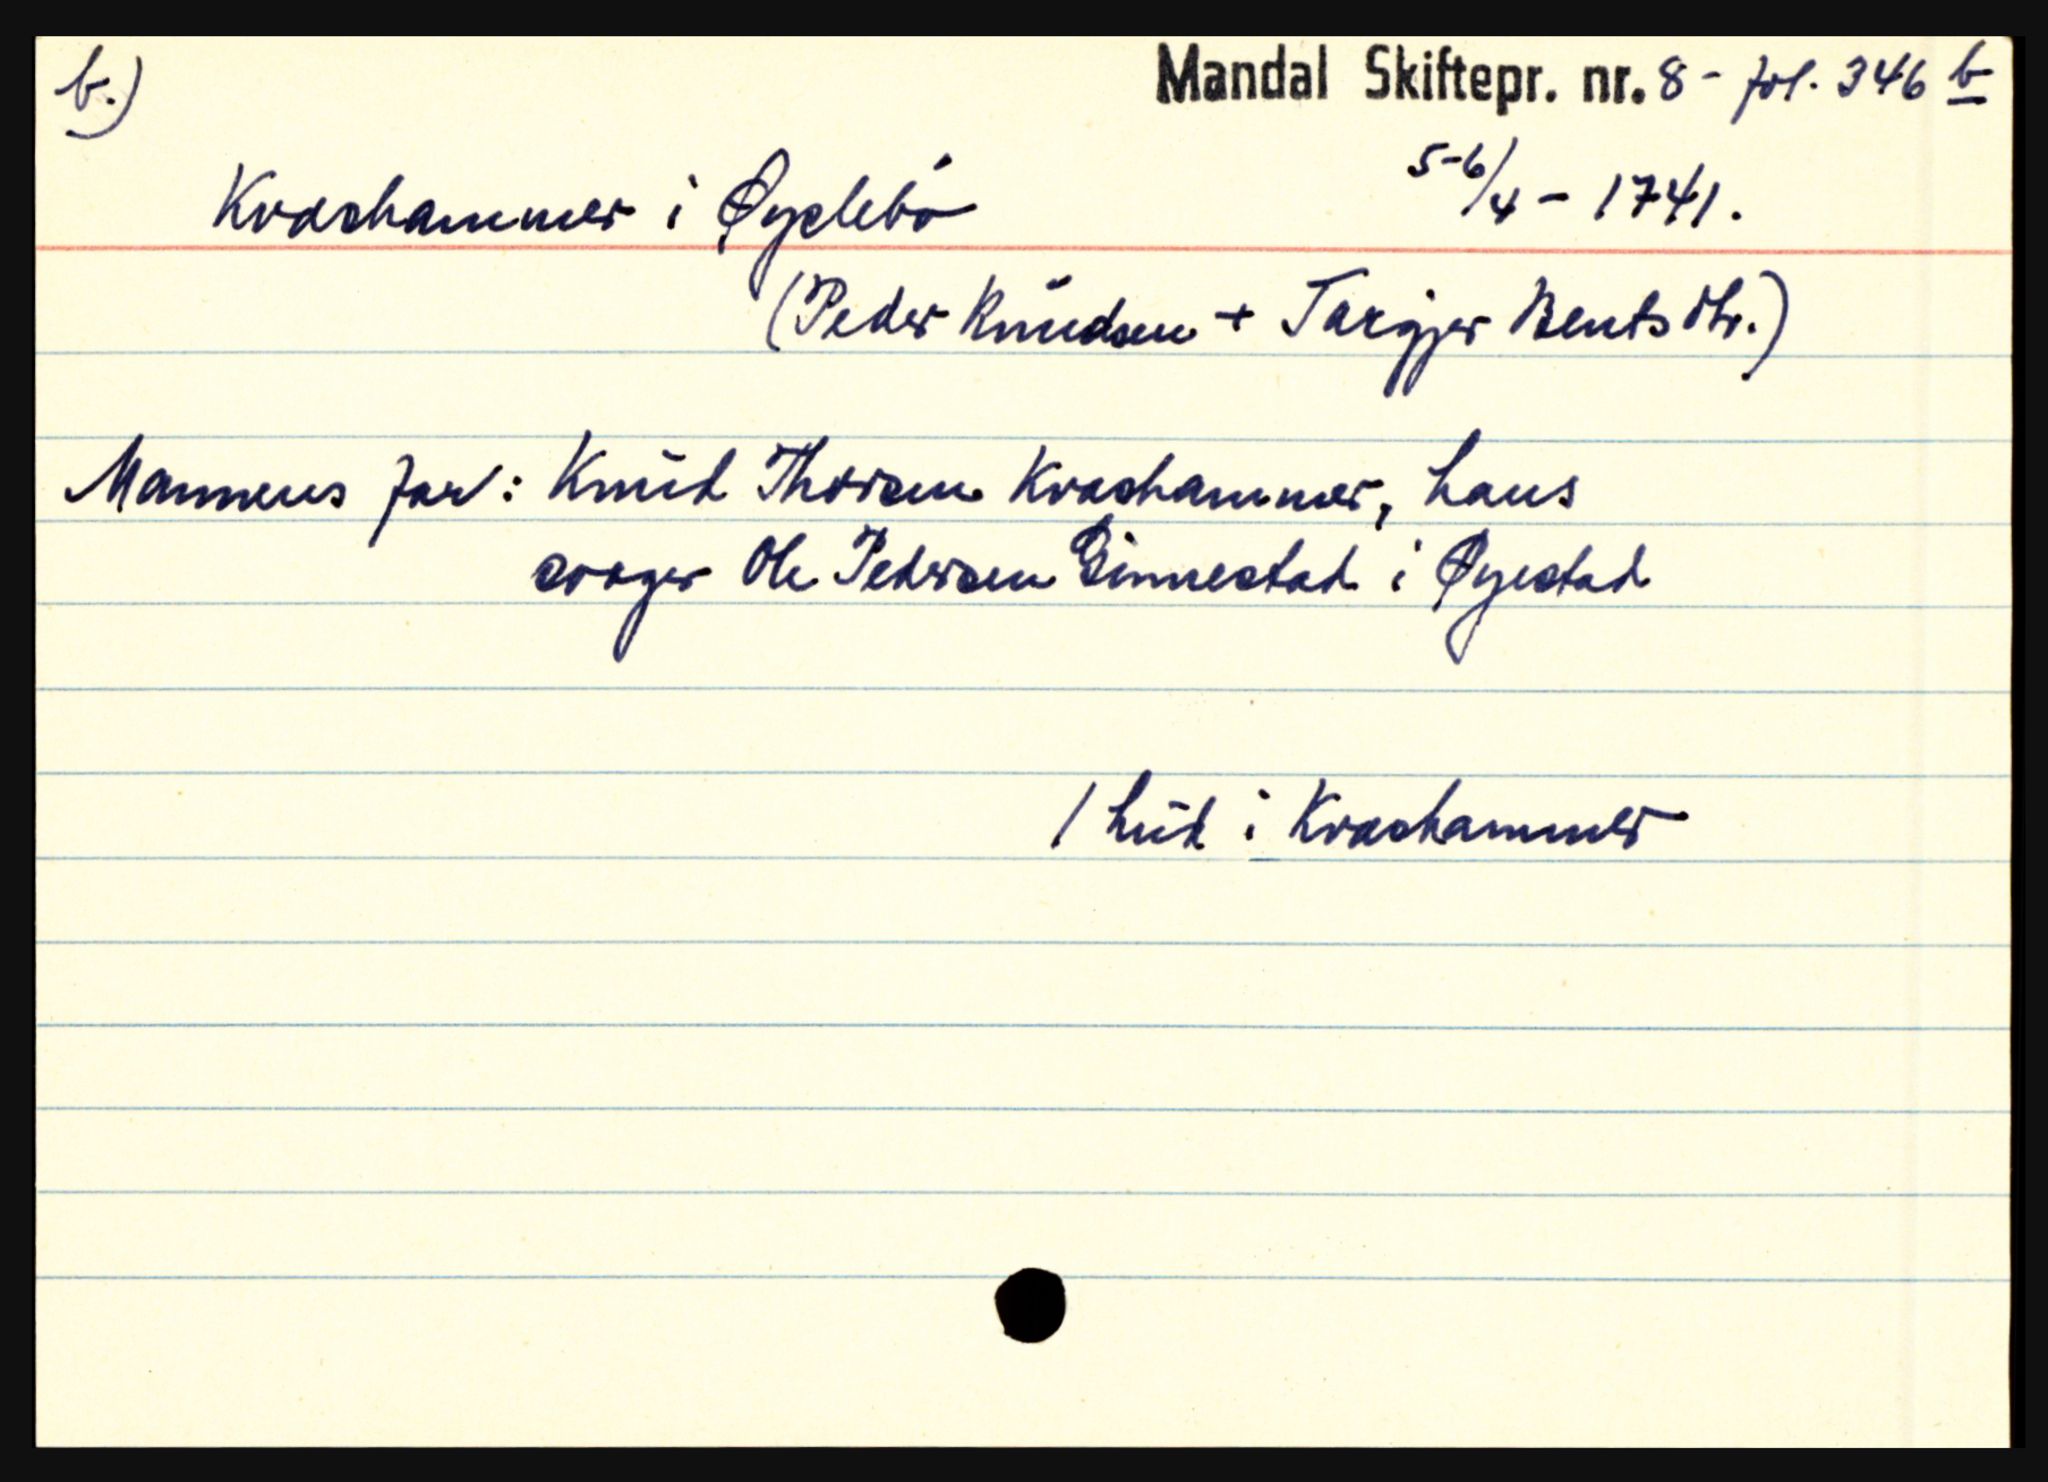 b.)
Mandal Skiftepr. nr. 8 - fol. 346 b
5-6/4 - 1741.
Kvashammer i Øyslebø
(Peder Knudsen + Targjer Bentsdtr.)
Mannens far: Knud Thorsen Kvashammer, hans
svoger Ole Pedersen Ginnestad i Øyestad
1 hud i Kvashammer